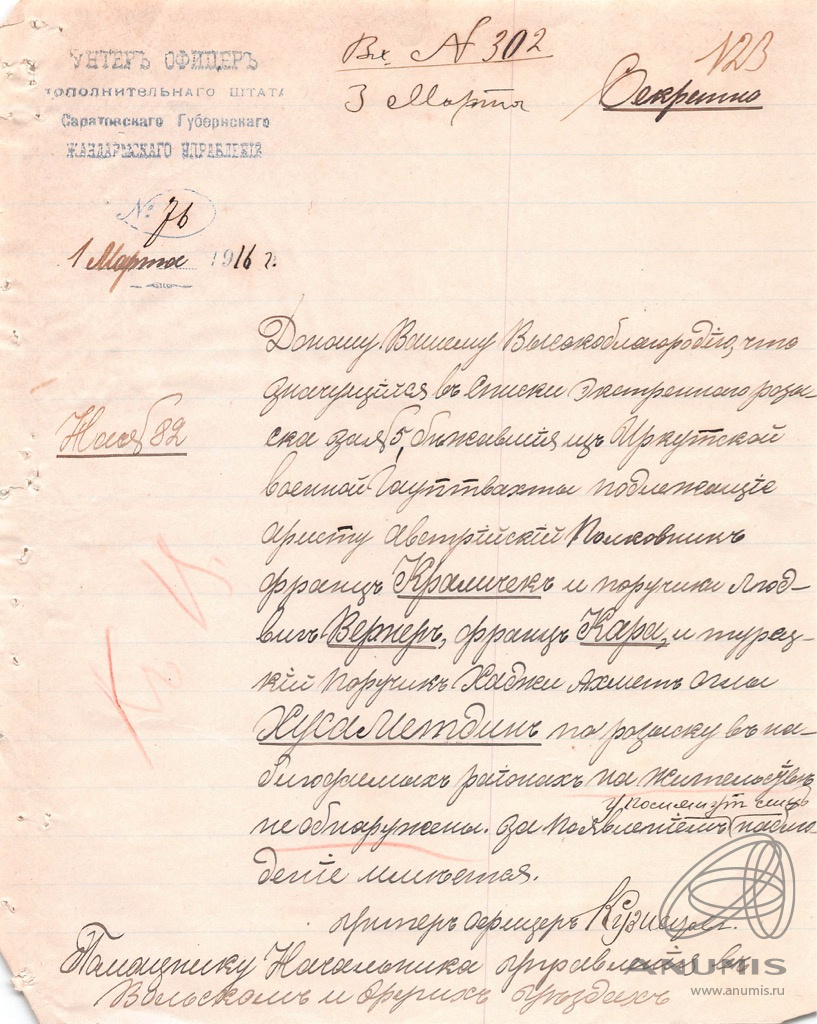 УНТЕРЪ ОФИЦЕРЪ
ДОПОЛНИТЕЛЬНАГО ШТАТА
Саратовскаго Губернскаго
ЖАНДАРМСКАГО УПРАВЛЕНІЯ
№ 76
1 Марта 1916 г.
Вх. № 302
3 Марта
Секретно
На № 82
Доношу Вашему Высокоблагородію, что
значущійся въ Списки Экстреннаго розы-
ска за № 5, бѣжавшія изъ Иркутской
военной Гауптвахты подлежащіе
аресту Австрійскій Полковникъ
францъ Краличекъ и поручики люд-
вигъ Вернеръ, францъ Кара, и турец-
кій поручикъ Хаджи Ахметъ Оглы
Хусаметдинъ по розыску въ на-
блюдаемыхъ раіонахъ на жительствѣ
не обнаружены. за появленіемъ
упомянут. лицъ
наблю-
деніе имѣется.
Унтеръ Офицеръ
Помощнику Начальника Управленія въ
Вольскомъ и другихъ уѣздахъ
ANUMIS
www.anumis.ru